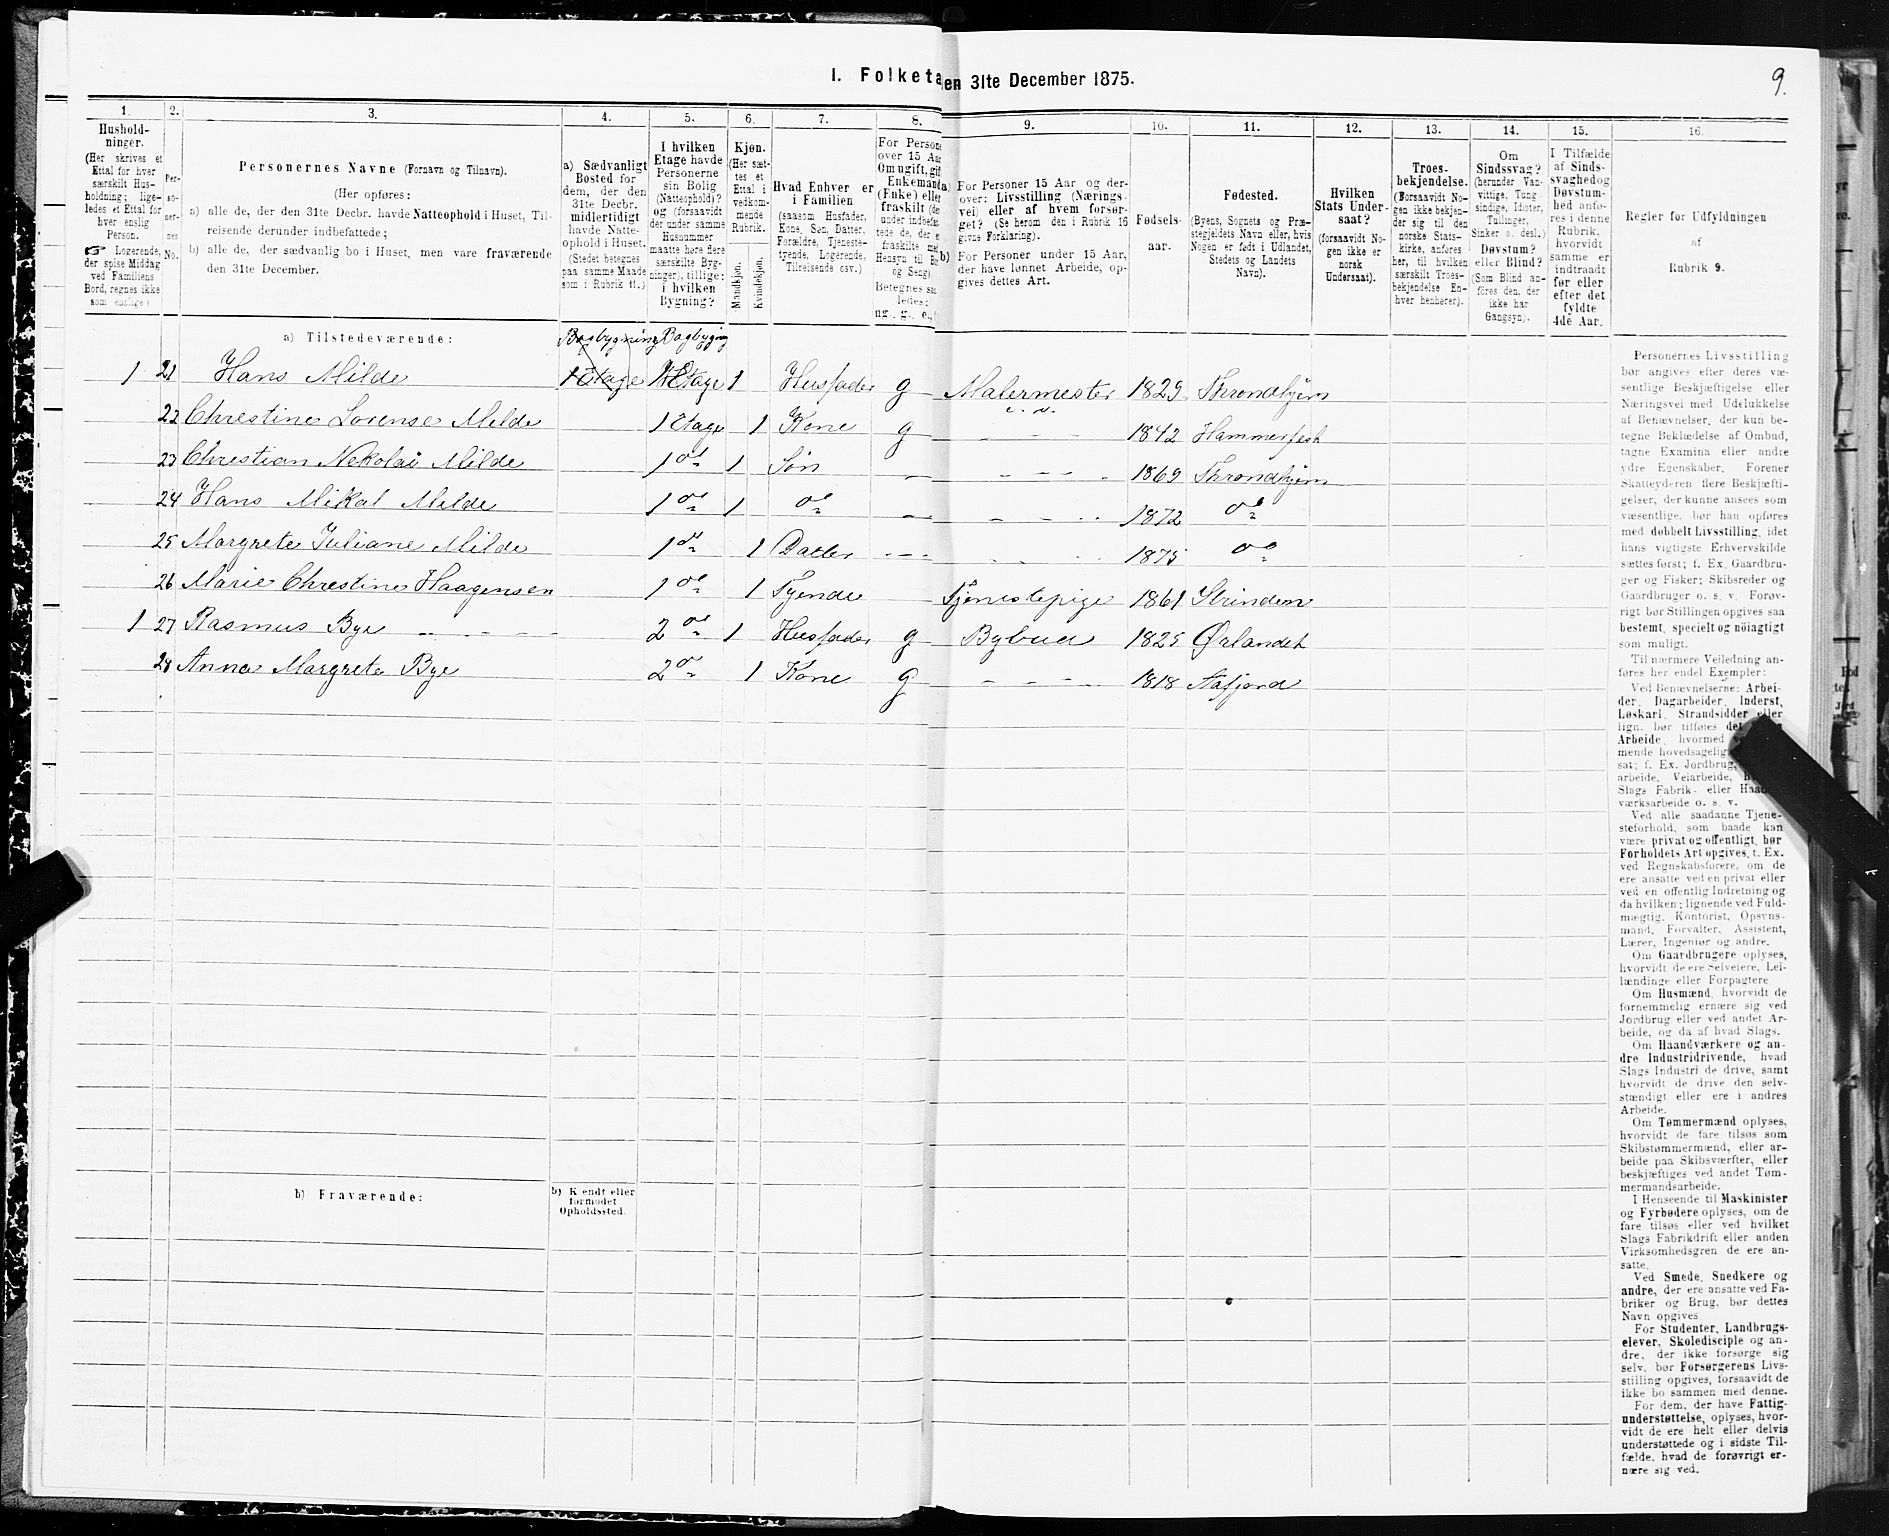 I. Folketa
en 31te December 1875.
9.
1.
2.
3.
4.
5.
6.
7.
8.
9.
10.
11.
12.
13.
14.
15.
16.
Hushold-
ninger.
(Her skrives et
Ettal for hver
særskilt Hus-
holdning; lige-
ledes et Ettal for
hver enslig
Person.
☞ Logerende,
der spise Middag
ved Familiens
Bord, regnes ikke
som enslige)
Per-
so-
ner-
nes
No.
Personernes Navne (Fornavn og Tilnavn).
(Her opføres:
a) alle de, der den 31te Decbr. havde Natteophold i Huset, Til-
reisende derunder indbefattede;
b) alle de, der sædvanlig bo i Huset, men vare fraværende
den 31te December.
a) Sædvanligt
Bosted for
dem, der den
31te Decbr.
midlertidigt
havde Natte-
ophold i Huset.
(Stedet betegnes
paa samme Maade
som i Rubrik 11.)
I hvilken
Etage havde
Personerne
sin Bolig
(Natteophold)?
og (forsaavidt
der under samme
Husnummer
maatte høre flere
særskilte Byg-
ninger), tillige:
i hvilken
Bygning?
Kjøn.
(Her sæt-
tes et
Ettal i
vedkom-
mende
Rubrik.
Mandkjøn.
Kvindekjøn.
Hvad Enhver er
i Familien
(saasom Husfader,
Kone, Søn, Datter,
Forældre, Tjeneste-
tyende, Logerende,
Tilreisende osv.)
For Persone
over 15 Aar
Om ugift, gift
Enkemand
(Enke) eller
fraskilt (de
under indbefat-
tede de, der e
fraskilte me
Hensyn til Bo
og Seng)
Betegnes saa
ledes:
ug., g., e.,
a) For Personer 15 Aar og der-
over: Livsstilling (Nærings-
vei) eller af hvem forsør-
get? (Se herom den i Rubrik 16
givne Forklaring).
b) For Personer under 15 Aar,
der have lønnet Arbeide, op-
gives dettes Art.
Fødsels-
aar.
Fødested.
(Byens, Sognets og Præ-
stegjeldets Navn eller, hvis
Nogen er født i Udlandet,
Stedets og Landets
Navn).
Hvilken
Stats Under-
saat?
(forsaavidt No-
gen ikke er
norsk
Undersaat).
Troes-
bekjendelse.
(Forsaavidt No-
gen ikke bekjen-
der sig til den
norske Stats-
kirke, anføres
her, til hvilken
særskilt Troes-
bekjendelse En-
hver henhører).
Om
Sindssvag?
(herunder Van-
vittige, Tung-
sindige, Idioter,
Tullinger,
Sinker o. desl.)
Døvstum?
eller Blind?
(Som Blind an-
føres den, der
ikke har
Gangsyn).
I Tilfælde
af Sinds-
svaghed og
Døvstum-
hed anfø-
res i denne
Rubrik,
hvorvidt
samme er
indtraadt
før eller
efter det
fyldte
4de Aar.
Regler før Udfyldningen
af
Rubrik 9.
a) Tilstedeværende:
Bagbygning Bagbygning
1 21 Hans Milde 1 Etage 1 Etage 1 Husfader g Malermester 1829 Throndhjem
22 Chrestine Lorense Milde 1 Etage 1 Kone g 1842 Hammerfest
23 Christian Nekolai Milde 1 do 1 Søn 1869 Throndhjem
24 Hans Mikal Milde 1 do 1 do 1872 do
25 Margrete Juliane Milde 1 do 1 Datter 1875 do
26 Marie Chrestine Haagensen 1 do 1 Tyende Tjenestepige 1861 Strinden
1 27 Rasmus Bye 2 do 1 Husfader g Bybud 1825 Ørlandet
28 Anna Margrete Bye 2 do 1 Kone g 1818 Aafjord
b) Fraværende:
b) Kjendt eller
formodet
Opholdssted.
Personernes Livsstilling
bør angives efter deres væ-
sentlige Beskjæftigelse eller
Næringsvei med Udelukkelse
af Benævnelser, der kun be-
tegne Beklædelse af Ombud,
tagne Examina eller andre
ydre Egenskaber. Forener
Skatteyderen flere Beskjæfti-
gelser, der kunne ansees som
væsentlige, bør han opføres
med dobbelt Livsstilling, idet
hans vigtigste Erhvervskilde
sættes først; f. Ex. Gaardbru-
ger og Fisker; Skibsreder og
Gaardbruger o. s. v. Forøv-
rigt bør Stillingen opgives saa
bestemt, specielt og nöiagtigt
som muligt.
Til nærmere Veiledning an-
føres her endel Exempler:
Ved Benævnelserne: Arbei-
der, Dagarbeider, Inderst,
Løskarl, Strandsidder eller
lign. bør tilføies det
Arbeide, hvormed
mende hovedsagelig
sat; f. Ex. Jordbrug,
arbeide, Veiarbeide,
Slags Fabrik- eller Haand-
værksarbeide o. s. v.
Ved alle saadanne Tjene-
steforhold, som baade kan
være privat og offentligt, bør
Forholdets Art opgives, t. Ex.
ved Regnskabsførere, om de
ere ansatte ved en privat eller
ved en offentlig Indretning og
da hvilken; lignende ved Fuld-
mægtig, Kontorist, Opsyns-
mand, Forvalter, Assistent,
Lærer, Ingeniør og andre.
Om Gaardbrugere oplyses,
hvorvidt de ere Selveiere, Lei-
lændinge eller Forpagtere
Om Husmænd, hvorvidt de
fornemmelig ernære sig ved
Jordbrug eller ved andet Ar-
beide, og da af hvad Slags.
Om Haandværkere og an-
dre Industridrivende, hvad
Slags Industri de drive, samt
hvorvidt de drive den selv-
stændigt eller ere i andres
Arbeide.
Om Tømmermænd oplyses,
hvorvidt de fare tilsøs som
Skibstømmermænd, eller ar-
beide paa Skibsværfter, eller
beskjæftiges ved andet Tøm-
mermandsarbeide.
I Henseende til Maskinister
og Fyrbødere oplyses, om de
fare tilsøs eller ved hvilket
Slags Fabrikdrift eller anden
Virksomhedsgren de ere an-
satte.
Ved Smede, Snedkere og
andre, der ere ansatte ved Fa-
briker og Brug, bør dettes
Navn opgives
For Studenter, Landbrugs-
elever, Skoledisciple og an-
dre, der ikke forsørge sig
selv, bør Forsørgerens Livs-
stilling opgives, forsaavidt de
ikke bo sammen med denne.
For dem, der have Fattig-
understøttelse, oplyses, hvor-
vidt de ere helt eller delvis
understøttede og i sidste Til-
fælde, hvad de forøvrigt er-
nære sig ved.